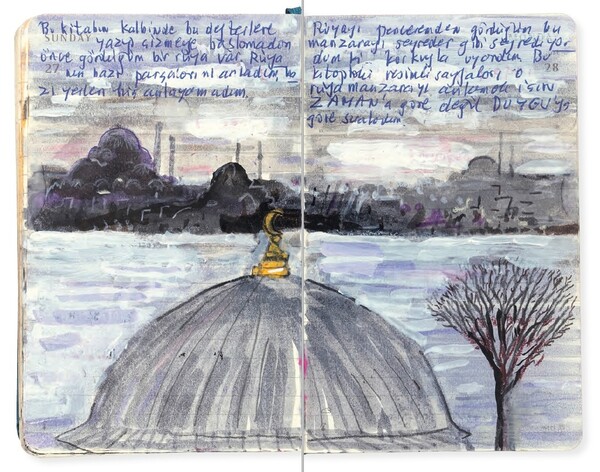 Bu kitabın kalbinde bu defterlere
SUNDAY yazıp çizmeye başlamadan
önce gördüğüm bir rüya var. Rüya
27 nın bazı parçalarını anladım, ba
zı yerleri hiç anlayamadım.
Rüyayı penceremden gördüğüm bu
manzarayı seyreder gibi seyrediyor
dum ki korkuyla uyandım. Bu
kitaptaki resimli sayfaları o 28
rüya manzarayı anlamak için
ZAMAN'a göre değil DUYGUya
göre sıraladım.